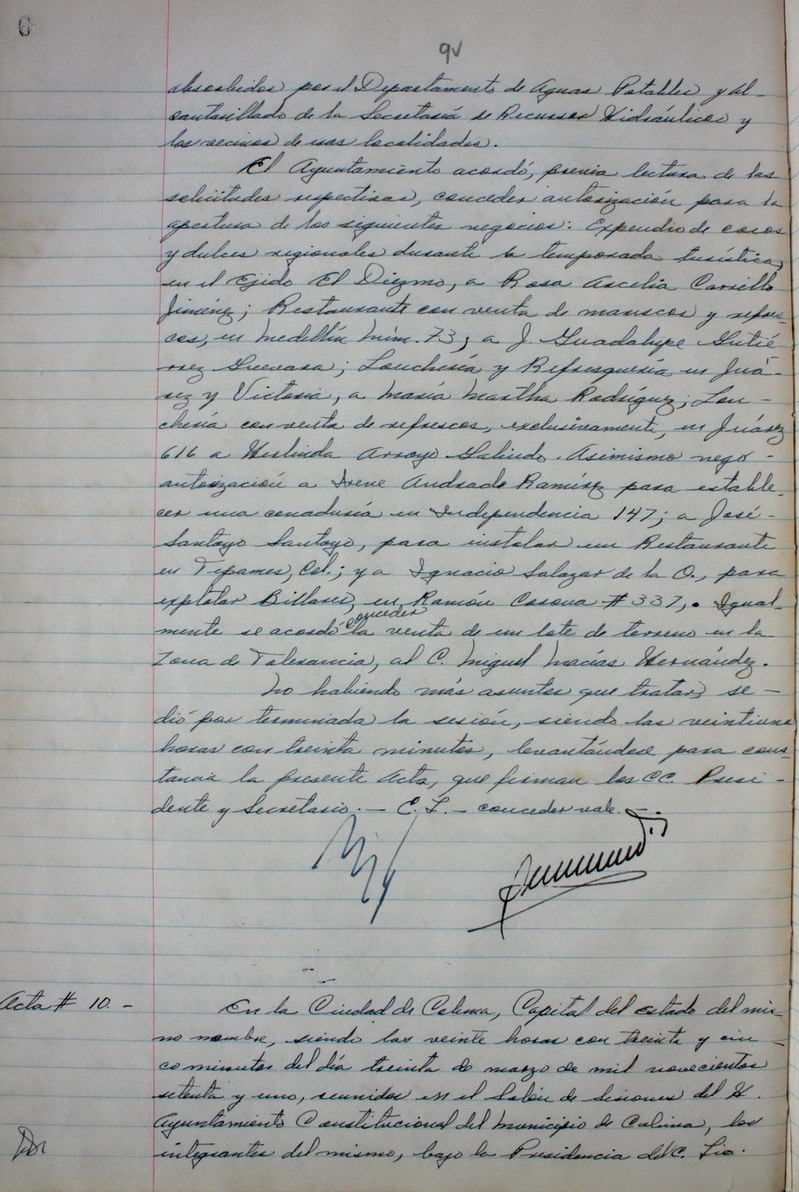 9v
absorbidos por el Departamento de Aguas Potables y Al-
cantarillado de la Secretaría de Recursos Hidráulicos y
los vecinos de esas localidades.
El Ayuntamiento acordó, previa lectura de las
solicitudes respectivas, conceder autorización para la
apertura de los siguientes negocios: Expendio de cocos
y dulces regionales durante la temporada turística,
en el Ejido El Diezmo, a Rosa Ascelia Carrillo
Jiménez; Restaurante con venta de mariscos y refres-
cos, en Medellín Núm. 73, a J. Guadalupe Gutié
rrez Guevara; Lonchería y Refresquería en Juá-
rez y Victoria, a María Martha Rodríguez; Lon-
chería con venta de refrescos, exclusivamente, en Juárez
616 a Herlinda Arroyo Galindo. Asimismo negó-
autorización a Irene Andrade Ramírez para estable-
cer una cenaduría en Independencia 147; a José-
Santoyo Santoyo, para instalar un Restaurante
en Tepames, Col.; y a Ignacio Salazar de la O., para
explotar Billares, en Ramón Corona # 337,. Igual-
mente se acordó conceder la venta de un lote de terreno en la
Zona de Tolerancia, al C. Miguel Macías Hernández.
No habiendo más asuntos que tratar, se-
dió por terminada la sesión, siendo las veintiuna
horas con treinta minutos, levantándose para cons-
tancia la presente Acta, que firman los CC. Presi-
dente y Secretario.- E.L.- conceder vale.-.
Acta # 10.-
En la Ciudad de Colima, Capital del estado del mis-
mo nombre, siendo las veinte horas con treinta y cin-
co minutos del día treinta de marzo de mil novecientos
setenta y uno, reunidos en el Salón de Sesiones del H.
Ayuntamiento Constitucional del Municipio de Colima, los
integrantes del mismo, bajo la Presidencia del C. Lic.